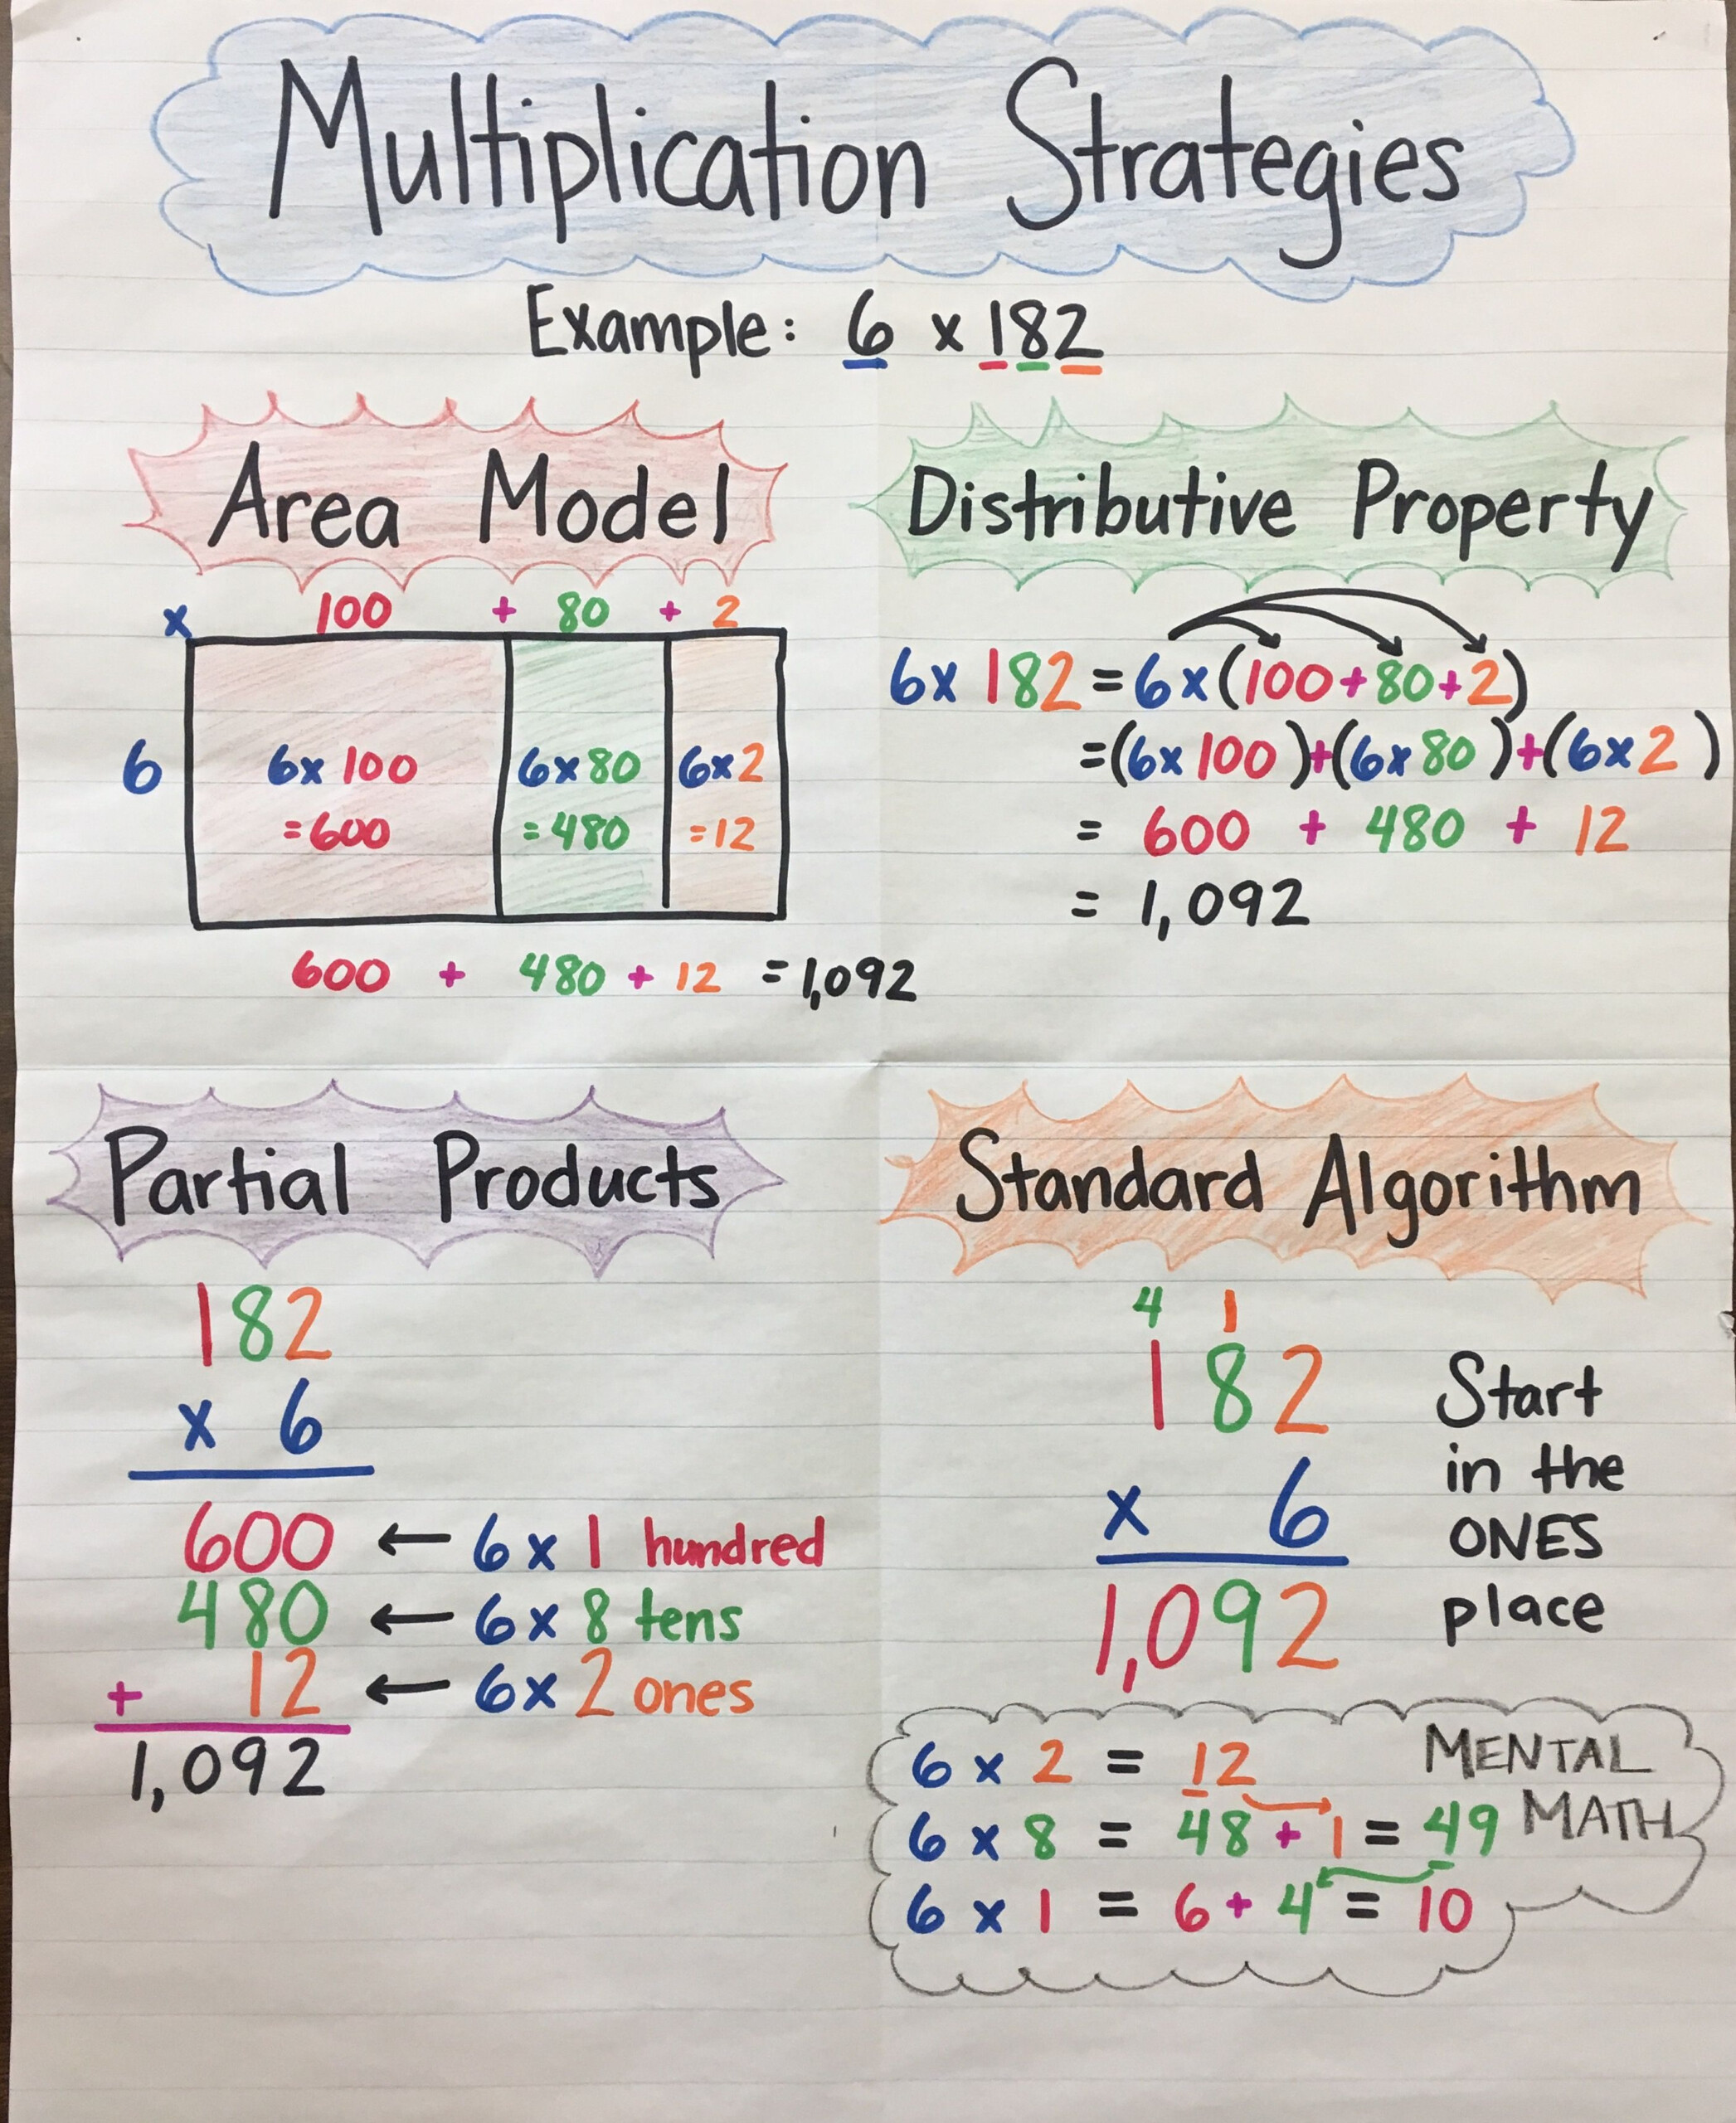 Multiplication Strategies
Example: 6 x 182
Area Model
x 100 + 80 + 2
6
6x 100 6x80 6x2
=600 =480 =12
600 + 480 + 12 = 1,092
Distributive Property
6x 182 = 6x(100+80+2)
=(6x 100)+(6x80)+(6x2)
= 600 + 480 + 12
= 1,092
Partial Products
182
x 6
600 ← 6x 1 hundred
480 ← 6x 8 tens
+ 12 ← 6x 2 ones
1,092
Standard Algorithm
4 1
182
x 6
1,092
Start
in the
ONES
place
MENTAL
MATH
6 x 2 = 12
6 x 8 = 48 + 1 = 49
6 x 1 = 6 + 4 = 10